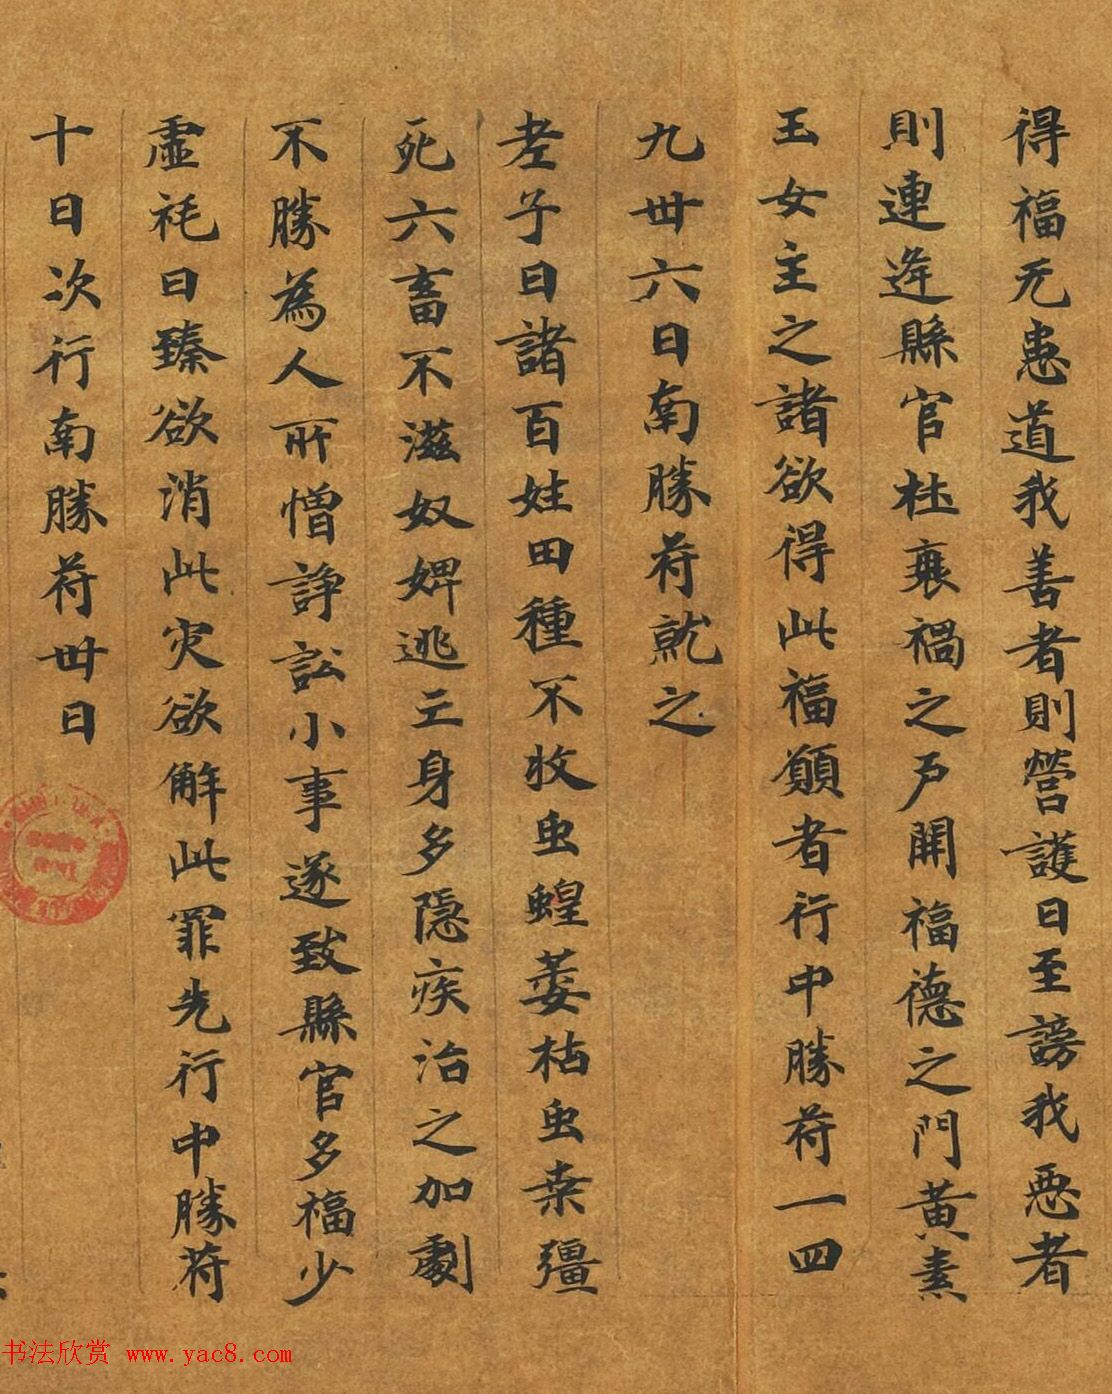 得福无患道我善者則營護日至謗我惡者
則連逢縣官杜襄禍之戶開福德之門黃素
玉女主之諸欲得此福願者行中勝符一四
九卌六日南勝符就之
老子曰諸百姓田種不收虫蝗萎枯虫桒殭
死六畜不滋奴婢逃亡身多隱疾治之加劇
不勝為人所憎諍訟小事遂致縣官多福少
虛耗日臻欲消此灾欲解此罪先行中勝符
十日次行南勝符卌日
书法欣赏 www.yac8.com